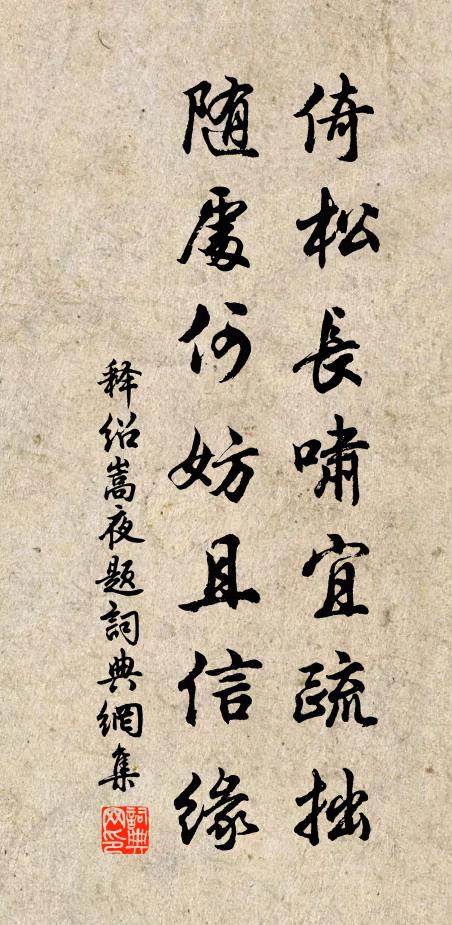 倚松長嘯宜疏拙
随處何妨且信緣
释绍嵩夜题詞典網集
詞典網印